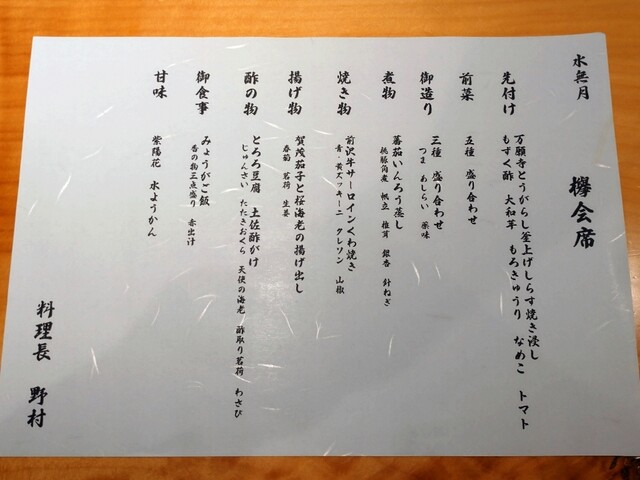 水無月　欅会席
先付け　万願寺とうがらし釜上げしらす焼き浸し
もずく酢　大和芋　もろきゅうり　なめこ　トマト
前菜　五種　盛り合わせ
御造り　三種　盛り合わせ
つま　あしらい　薬味
煮物　蕃茄いんろう蒸し
桃豚角煮　帆立　椎茸　銀杏　針ねぎ
焼き物　前沢牛サーロインくわ焼き
青・黄ズッキーニ　クレソン　山椒
揚げ物　賀茂茄子と桜海老の揚げ出し
春菊　茗荷　生姜
酢の物　とろろ豆腐　土佐酢がけ
じゅんさい　たたきおくら　天使の海老　酢取り茗荷　わさび
御食事　みょうがご飯
香の物三点盛り　赤出汁
甘味　紫陽花　水ようかん
料理長　野村